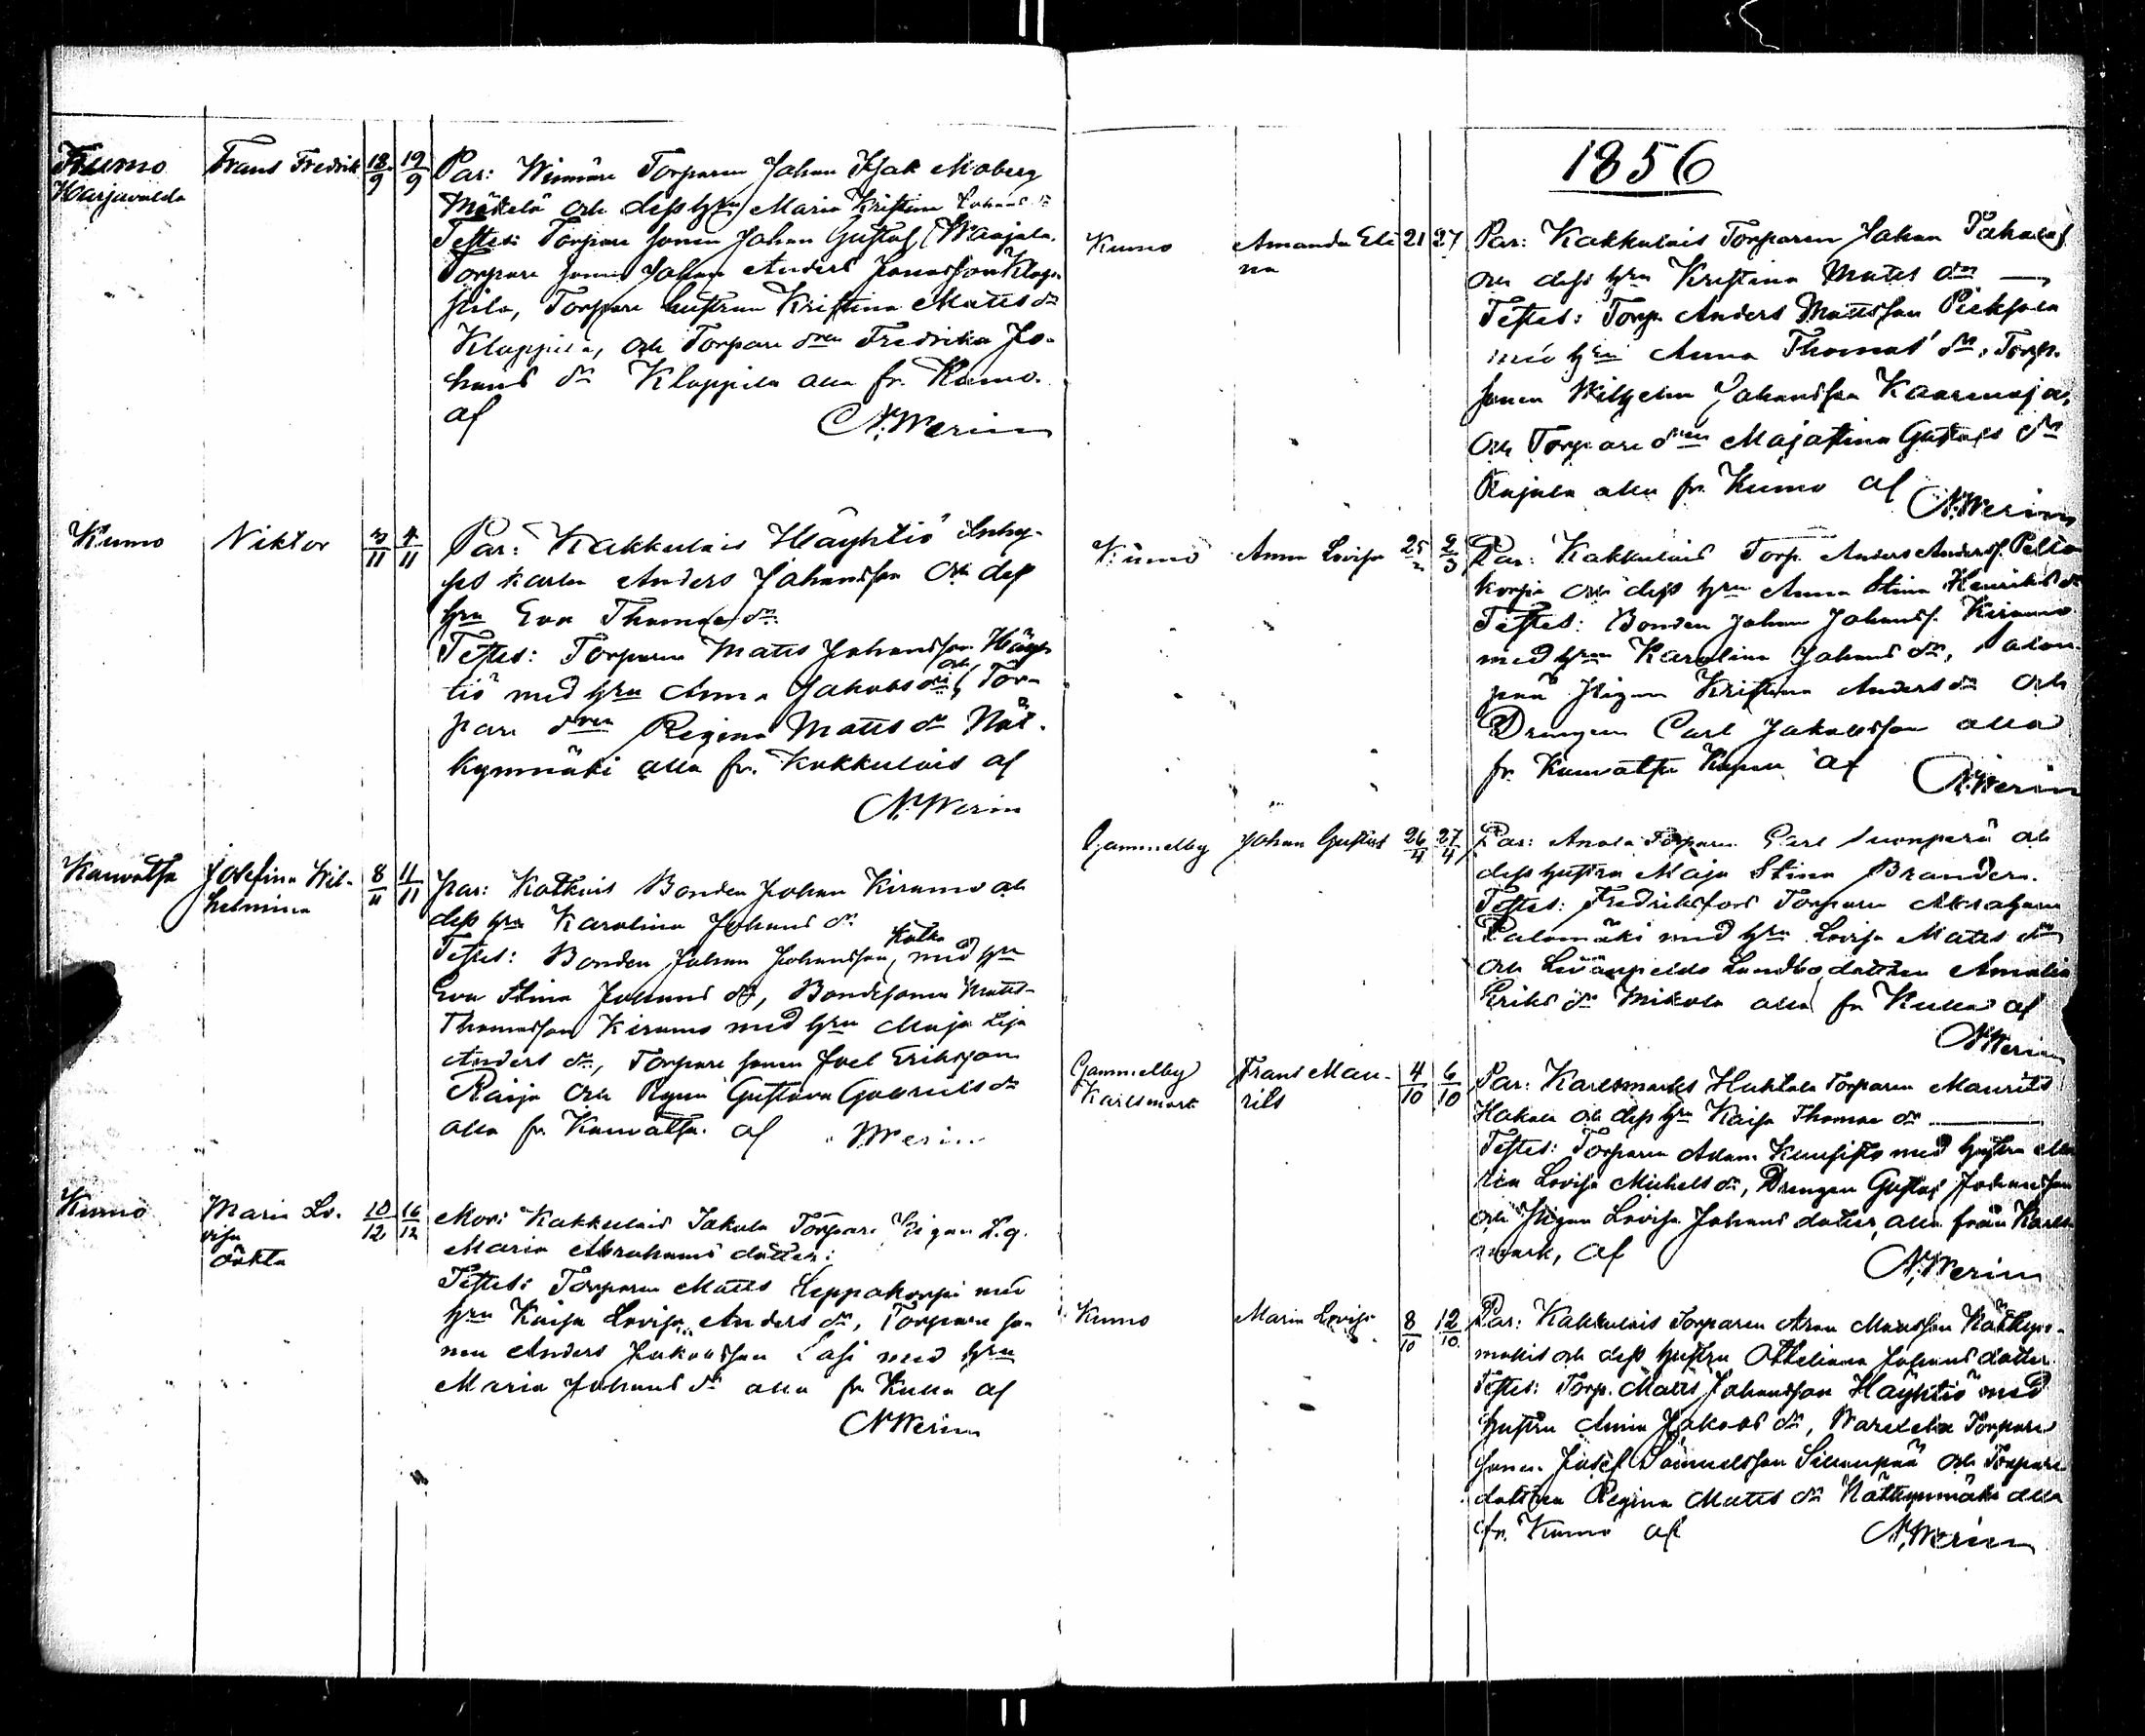 Kumo
Harjavalda
Frans Fredrik
18/9 19/9
Par: Winnäre Torparen Johan Isak Moberg
Mäkelä och dess hru Maria Kristina Johans dr
Testes: Torpare sonen Johan Gustaf
Torpare sonen Johan Anders Jonasson Klop
pila, Torpare hustrun Kristina Matts dr
Kloppila, och Torpare dren Fredrika Jo-
hans dr Kloppila alla fr. Kumo.
af N. Werin
Kumo
Niktor
3/11 4/11
Par: Kakkulais Häyhtiö Inhy-
ses karlen Anders Johansson och dess
hru Eva Thomas dr
Testes: Torparen Matts Johansson Häyh
tiö med hru Anna Jakobs dr och Tor-
pare dren Regina Matts dr Nät-
kynmäki alla fr. Kakkulais af
N. Werin
Kauvatsa
Josefina Wil-
helmina
8/11 11/11
Par: Katkais Bonden Johan Kiramo och
dess hru Karolina Johans dr
Testes: Bonden Johan Johansson Katka med hru
Eva Stina Johans dr, Bondesonen Matts
Thomasson Kiramo med hru Maja Lisa
Anders dr, Torpare sonen Joel Eriksson
Raija och Pigan Gustava Gabriels dr
alla fr. Kauvatsa. af N Werin
Kumo
Maria Lo-
visa
oäkta
10/12 16/12
Mor: Kakkulais Jakula Torpare Pigan L.q.
Maria Abrahams dotter:
Testes: Torparen Matts Leppakorpi med
hru Kaisa Lovisa Anders dr, Torpare so
nen Anders Jakobsson Lasi med hru
Maria Johans dr alla fr Kulla af
N Werin
1856
Kumo
Amanda Eli
na
21 27
Par: Kakkulais Torparen Johan
och dess hru Kristina Matts dr
Testes: Torp. Anders Mattsson Pieksala
med hru Anna Thomas dr, Torp.
sonen Wilhelm Johansson Kaarenoja,
och Torpare dren Majastina Gustafs dr
Rajala alla fr. Kumo af
N. Werin
Kumo
Anna Lovisa
25/2 2/3
Par: Kakkulais Torp. Anders Anderss. Pelto
korpi och dess hru Anna Stina Henriks dr
Testes: Bonden Johan Johanss. Kiramo
med hru Karolina Johans dr,
pää Pigan Kristina Anders dr och
Drengen Carl Jakobsson alla
fr. Kauvatsa Kapell af
N. Werin
Gammelby
Johan Gustaf
26/4 27/4
Par: Anola Torparen Carl Suonperä och
dess hustru Maja Stina Brander.
Testes: Fredriksfors Torparen Abraham
Palomäki med hru Lovisa Matts dr
och Levanpelds Landbodottren Amalia
Eriks dr Mikola alla fr Kulla af
N Werin
Gammelby
Karlsmark
Frans Mau-
rits
4/10 6/10
Par: Karlsmarks Huhtala Torparen Maurits
Hakala och dess hru Kaisa Thomas dr
Testes: Torparen Adam Kuusisto med hustru Ma
ria Lovisa Michels dr, Drengen Gustaf Johansson
och Pigan Lovisa Johans dotter, alla från Karls
mark, af
N. Werin
Kumo
Maria Lovisa
8/10 12/10
Par: Kakkulais Torparen Aron Mattsson Nätkyn-
mäki och dess hustru Otteliana Johans dotter.
Testes: Torp. Matts Johansson Häyhtiö med
hustru Anna Jakobs dr, Torpare
sonen Josef Samuelsson Sillanpää och Torpare
dottren Regina Matts dr Nätkynmäki alla
fr. Kumo af N. Werin